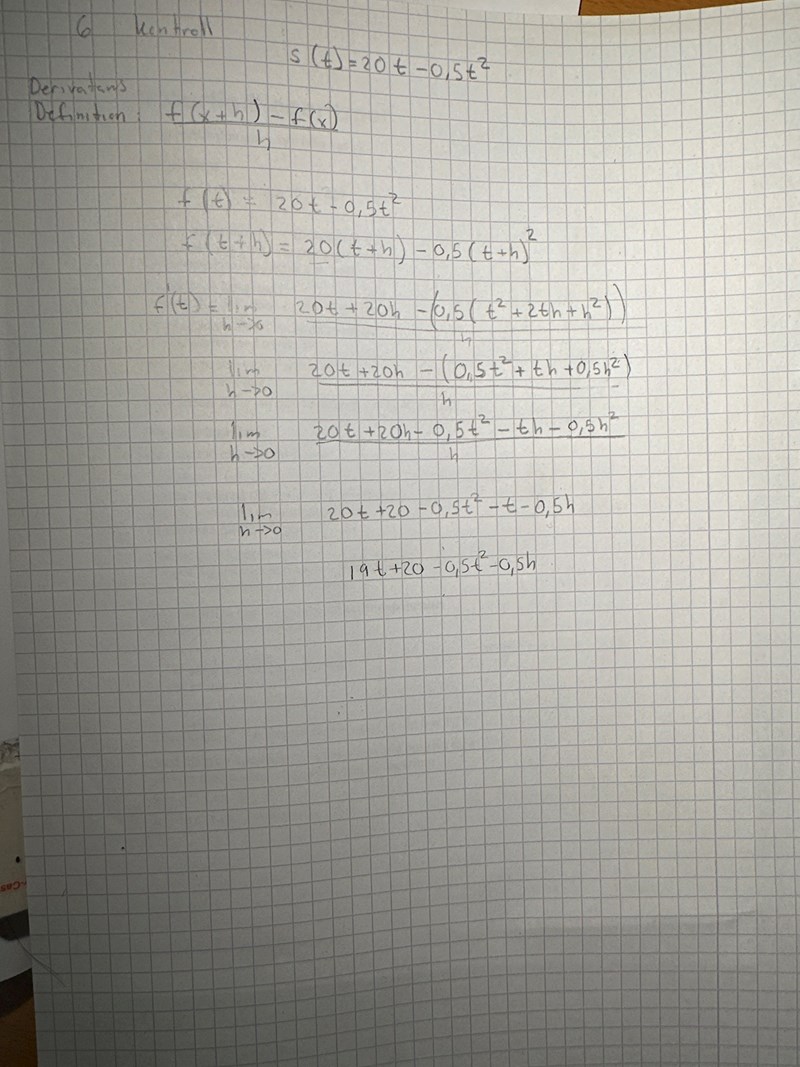 6 Kontroll
s(t) = 20t - 0,5t²
Derivatans
Definition: f(x+h) - f(x)
h
f(t) = 20t - 0,5t²
f(t+h) = 20(t+h) - 0,5(t+h)²
f'(t) = lim 20t + 20h - (0,5(t² + 2th + h²))
h→0 h
lim 20t + 20h - (0,5t² + th + 0,5h²)
h→0 h
lim 20t + 20h - 0,5t² - th - 0,5h²
h→0 h
lim 20t + 20 - 0,5t² - t - 0,5h
h→0
19t + 20 - 0,5t² - 0,5h